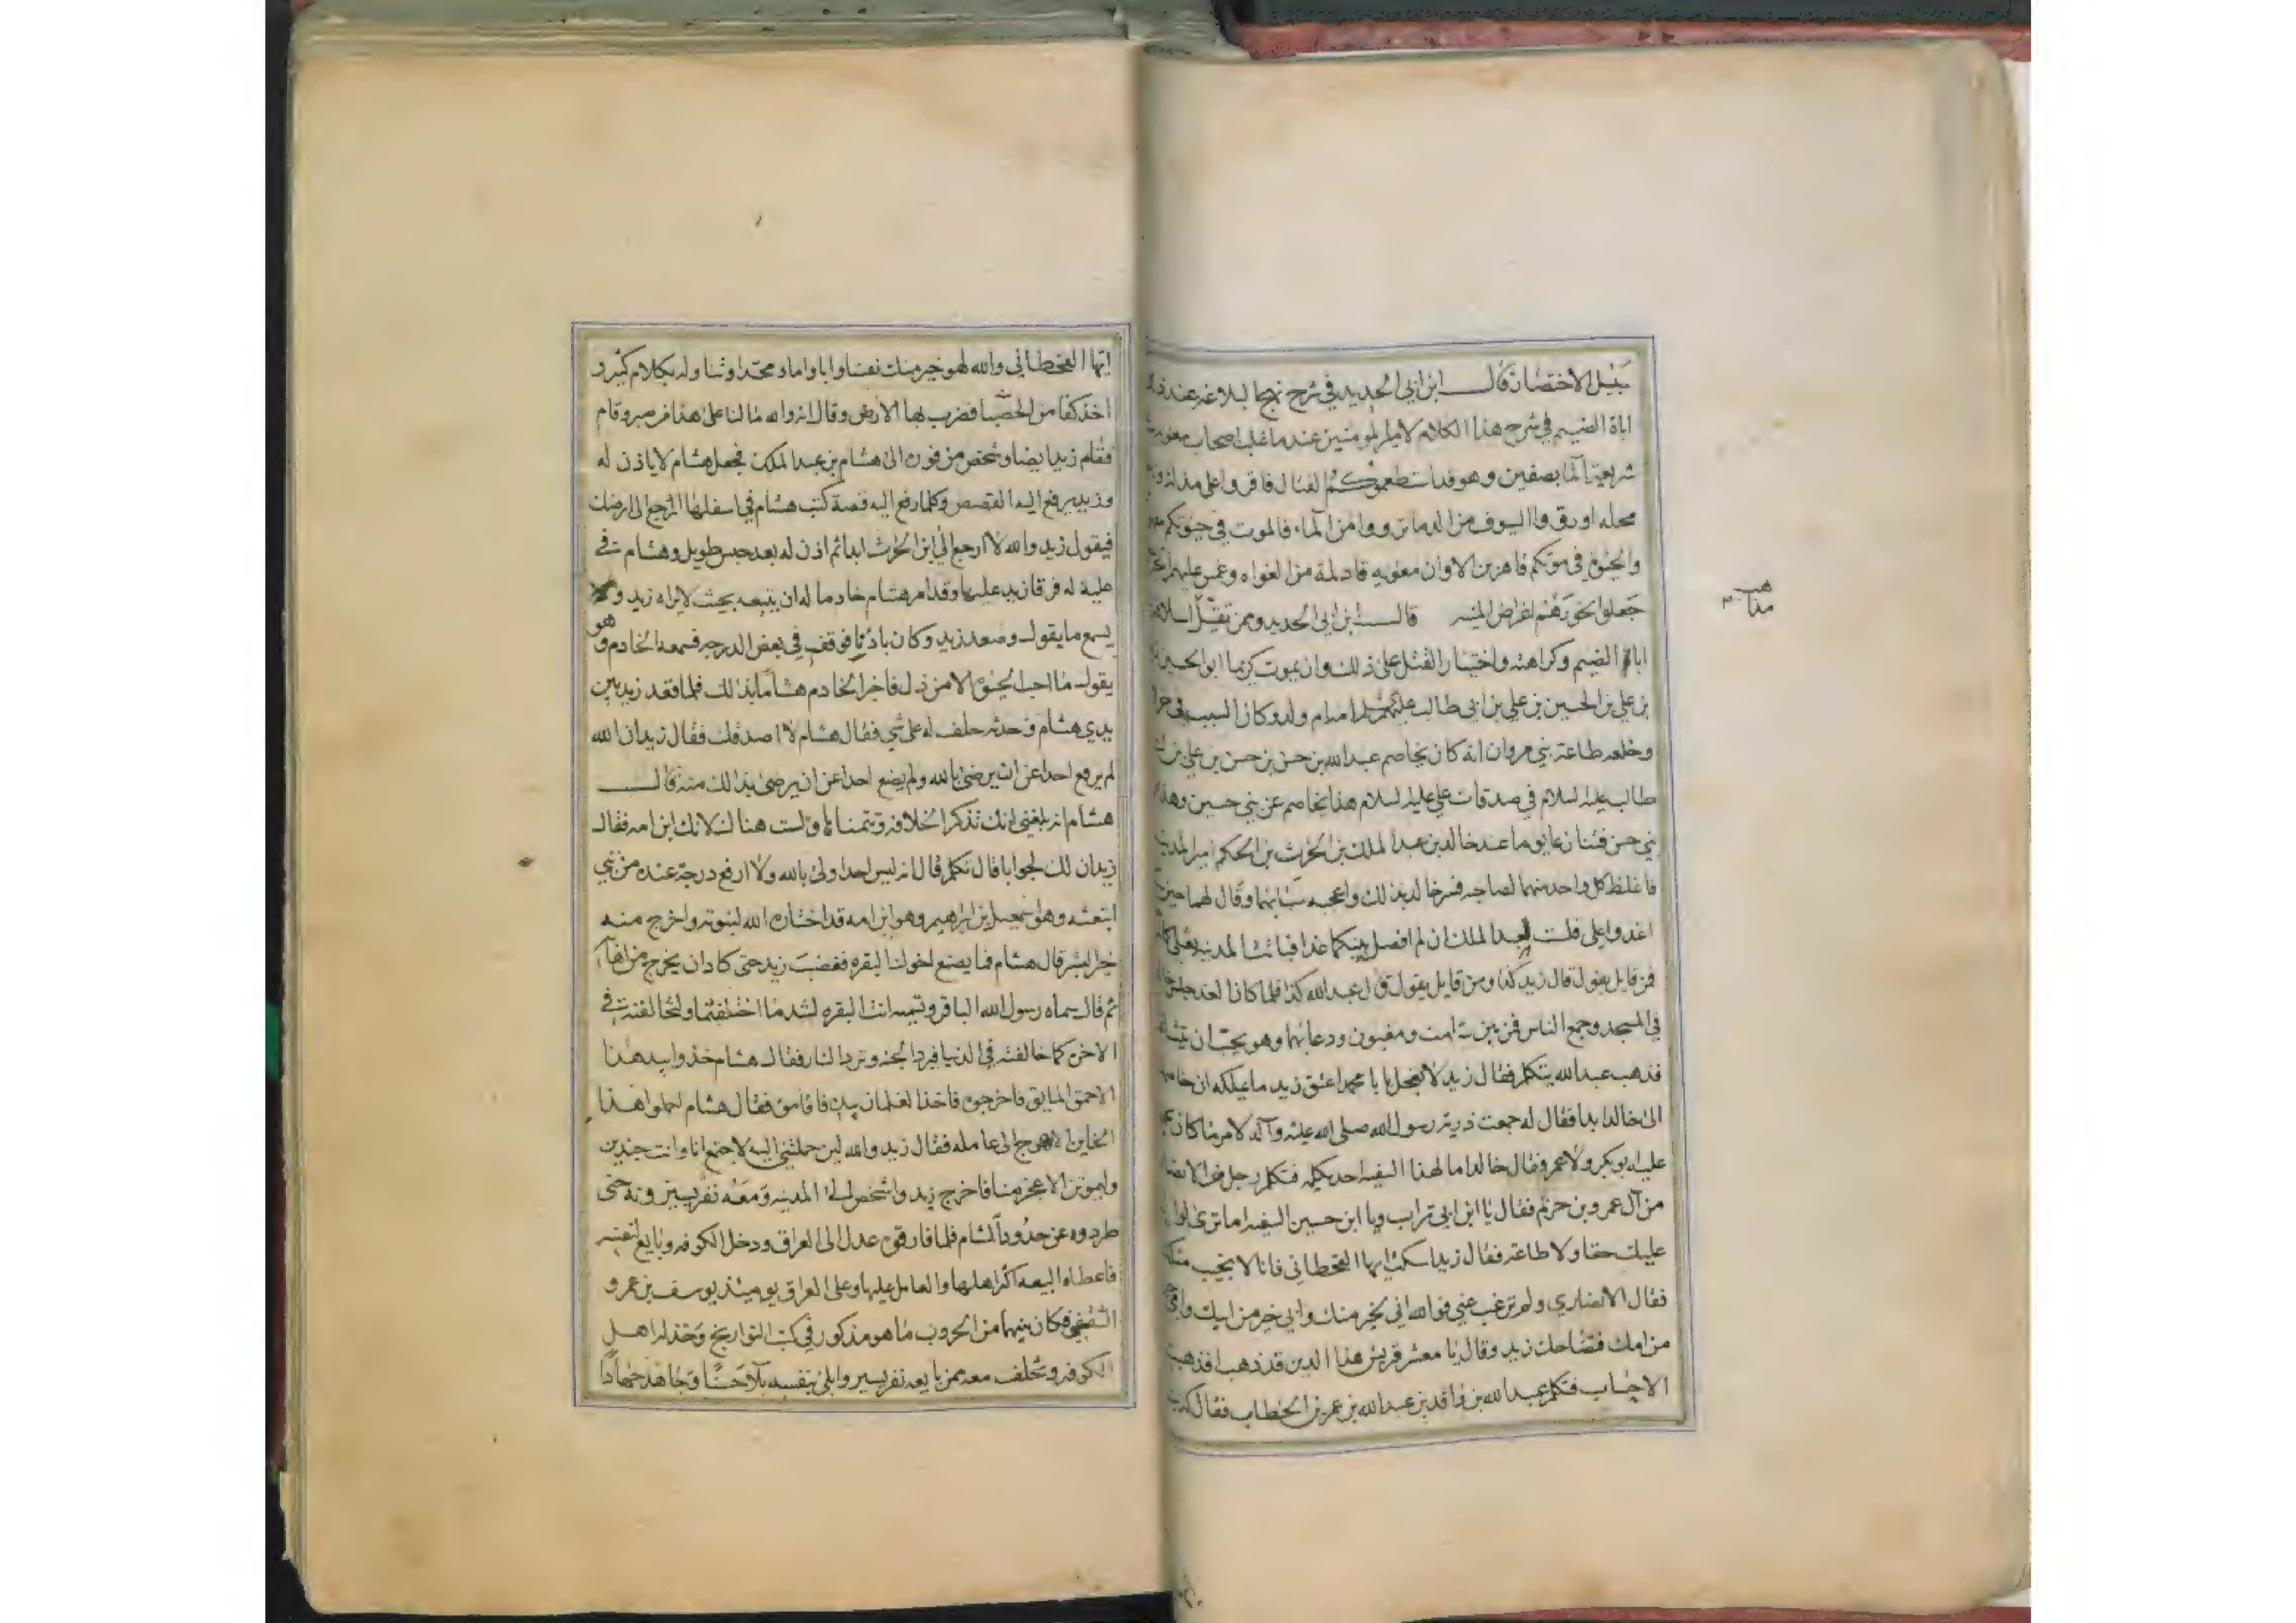 سبيل الاختصار قال ابن ابي الحديد في شرح نهج البلاغة عند ذكر
اباة الضيم في شرح هذا الكلام لامير المومنين عند ما غلب اصحاب معوية
شريعة الما بصفين وهو قد استطعموكم القتال فاقروا على مذلة و
محله او رووا السيوف من الدما ترووا من الماء فالموت في حيوتكم
والحيوة في موتكم قاهرين الا وان معويه قاد لمة من الغواه وعمس عليهم
جعلوا نحورهم اغراض المنيه قال ابن ابي الحديد وممن تقيل
اباة الضيم وكراهته واختيار القتل على ذلك وان يموت كريما ابو الحسين
بن علي بن الحسين بن علي بن ابي طالب عليهم السلام امه ام ولد وكان السبب في
وخلعه طاعة بني مروان انه كان يخاصم عبد الله بن حسن بن حسن بن علي بن
طالب عليه السلام في صدقات علي عليه السلام هذا يخاصم عن بني حسين وهذا
بني حسن فتنازعا يوما عند خالد بن عبد الملك بن الحرث بن الحكم امير المدينة
فاغلظ كل واحد منهما لصاحبه فسر خالد بذلك واعجبه سبابهما وقال لهما حين
اغدوا على فلست لعبد الملك ان لم افصل بينكما غدا فباتت المدينه تغلى
فمن قايل يقول قال زيد كذا ومن قايل يقول قال عبد الله كذا فلما كان الغد جلس
في المسجد وجمع الناس فمن بين شامت ومغبون ودعا بهما وهو يحب ان
فذهب عبد الله يتكلم فقال زيد لا تعجل يا با محمد اعتق زيد ما يملكه ان خاصمك
الى خالد ابدا فقال له جمعت ذرية رسول الله صلى الله عليه وآله لامر ما كان
عليه ابو بكر ولا عمر فقال خالد اما لهذا السفيه احد يكلمه فتكلم رجل من الانصار
من آل عمرو بن حزم فقال يا ابن ابي تراب ويا ابن حسين السفيه اما ترى لوال
عليك حقا ولا طاعة فقال زيد اسكت ايها القحطاني فانا لا نجيب مثلك
فقال الانصاري ولم ترغب عني فوالله اني لخير منك وابي خير من ابيك وامي
من امك فتضاحك زيد وقال يا معشر قريش هذا الدين قد ذهب افذهبت
الاحساب فتكلم عبد الله بن واقد بن عبد الله بن عمر بن الخطاب فقال كذبت
ايها القحطاني والله لهو خير منك نفسا وابا واما ومحتدا وتناوله بكلام كثير و
اخذ كفا من الحصبا فضرب بها الارض وقال انه والله ما لنا على هذا من صبر وقام
فقام زيد ايضا وشخص من فوره الى هشام بن عبد الملك فجعل هشام لا ياذن له
وزيد يرفع اليه القصص وكلما رفع اليه قصة كتب هشام في اسفلها ارجع الى ارضك
فيقول زيد والله لا ارجع الى ابن الحرث ابدا ثم اذن له بعد حبس طويل وهشام في
علية له فرقا زيد عليها وقد امر هشام خادما له ان يتبعه بحيث لا يراه زيد و
يسمع ما يقول وصعد زيد وكان بادنا فوقف في بعض الدرجه فسمعه الخادم وهو
يقول ما احب الحيوة الا من ذل فاخبر الخادم هشاما بذلك فلما قعد زيد بين
يدي هشام وحدثه حلف له على شي فقال هشام لا اصدقك فقال زيد ان الله
لم يرفع احدا عن ان يرضى بالله ولم يضع احدا عن ان يرضى بذلك منه قال
هشام انه بلغني انك تذكر الخلافه وتتمناها ولست هناك لانك ابن امه فقال
زيد ان لك لجوابا قال تكلم قال انه ليس احد اولى بالله ولا ارفع درجة عنده من نبي
ابتعثه وهو اسمعيل بن ابراهيم وهو ابن امه قد اختاره الله لنبوته واخرج منه
خير البشر قال هشام فما يصنع اخوك البقره فغضب زيد حتى كاد ان يخرج من اهابه
ثم قال سماه رسول الله الباقر وتسميه انت البقره لشد ما اختلفتما ولتخالفنه في
الاخرة كما خالفته في الدنيا فيرد الجنه وترد النار فقال هشام خذوا بيد هذا
الاحمق المايق فاخرجوه فاخذ الغلمان بيده فاقاموه فقال هشام احملوا هذا
الخاين الاهوج الى عامله فقال زيد والله لين حملتني اليه لا اجتمع انا وانت حيين
وليموتن الاعجز منا فاخرج زيد واشخص الى المدينه ومعه نفر يسيرونه حتى
طردوه عن حدود الشام فلما فارقوه عدل الى العراق ودخل الكوفه وبايع لنفسه
فاعطاه البيعه اكثر اهلها والعامل عليها وعلى العراق يوميئذ يوسف بن عمرو
الثقفي فكان بينهما من الحروب ما هو مذكور في كتب التواريخ وخذله اهل
الكوفه وتخلف معه ممن بايعه نفر يسير وابلى بنفسه بلآء حسنا وجاهد جهادا